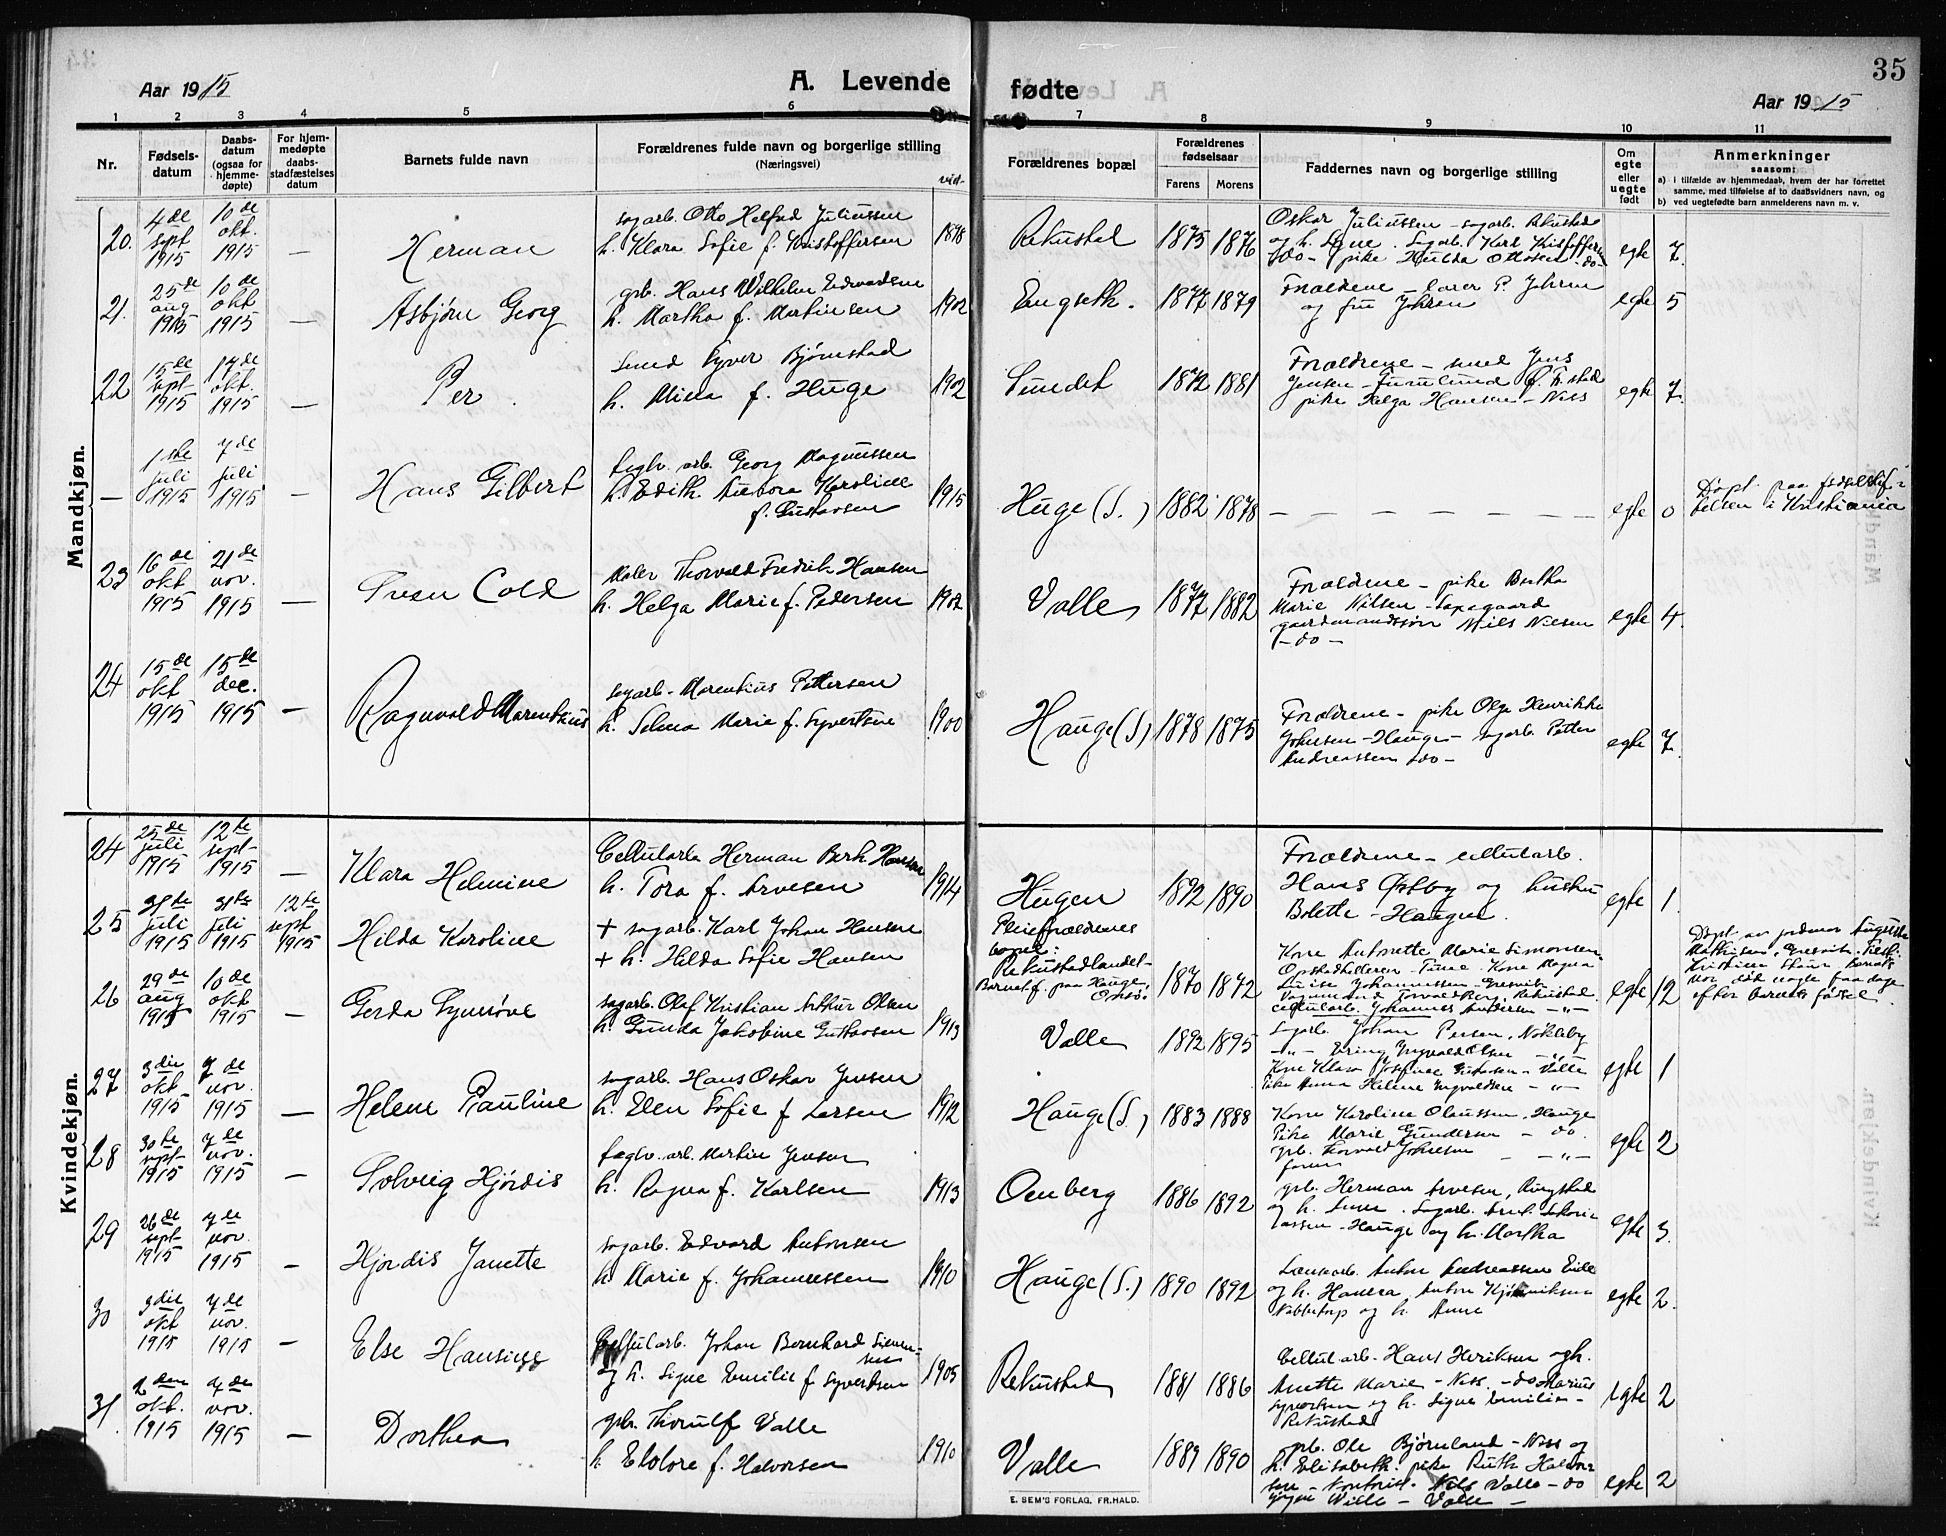 35
Aar 1915
A. Levende
fødte
Aar 1915
1 2 3 4 5 6 7 8 9 10 11
Nr.
Fødsels-
datum
Daabs-
datum
(ogsaa for
hjemme-
døpte)
For hjem-
medøpte
daabs-
stadfæstelses
datum
Barnets fulde navn
Forældrenes fulde navn og borgerlige stilling
(Næringsvei)
vid-
Forældrenes bopæl
Forældrenes
fødselsaar
Farens Morens
Faddernes navn og borgerlige stilling
Om
egte
eller
uegte
født
Anmerkninger
saasom:
a) i tilfælde av hjemmedaab, hvem der har forrettet
samme, med tilføielse af to daabsvidners navn, og
b) ved uegtefødte barn anmelderens navn m. v.
Mandkjøn.
20.
4de
sept
1915
10de
okt.
1915
—
Herman
sagarb. Otto Helfred Juliussen
h. Klara Sofie f. Kristoffersen
1898
Rekustad
1875 1876
Oskar Juliussen – sagarb. Rekustad
og h. Signe. Sagarb. Karl Kristoffersen
– do – pike Hulda Ottosen – do –
egte 7.
21.
25de
aug
1915
10de
okt
1915
—
Asbjørn Georg
grb. Hans Wilhelm Edvardsen
h. Martha f. Martinsen
1902
Engseth.
1877 1879
Forældrene – lærer P. Johren
og fru Johren
egte 5
22
15de
sept
1915
17de
okt.
1915
—
Per.
Smed Syver Bjørnstad
h. Mina f. Huge
1902
Sundet
1872 1881
Forældrene – smed Jens
Jensen – Furulund Ø. Fr.stad
pike Helga Hansen – Ness
egte 7.
—
1ste
juli
1915
7de
juli
1915
—
Hans Gilbert
faglv. arb. Georg Magnussen
h. Edith. Aurora Karoline
f. Gustavsen
1915
Huge (S.)
1882 1878
— — — — — — —
egte 0
Døpt paa fødselsstif-
telsen i Kristiania
23
16de
okt
1915
21de
nov.
1915
—
Svein Cold
Maler Thorvald Fredrik Hansen
h. Helga Marie f. Pedersen
1902
Valle
1877 1882
Forældrene – pike Bertha
Marie Nilsen – Sagegaard
gaardmandssøn Nils Nilsen
– do –
egte 4.
24
15de
okt
1915
15de
dec.
1915
—
Ragnvald Marentius
sagarb. Marentius Pettersen
h. Selma Marie f. Syvertsen
1900
Hauge (S)
1878 1875
Forældrene – pike Olga Henrikke
Johnsen – Hauge – sagarb. Petter
Andreassen – do –
egte 7.
Kvindekjøn.
24
25de
juli
1915
12te
sept
1915
—
Klara Helmine
Cellularb. Herman Berh. Hansen
h. Tora f. Arvesen
1914
Hugen
1892 1890
Forældrene – cellularb.
Hans Østby og hustru
Bolette – Haugen.
egte 1.
25
31te
juli
1915
31te
juli
1915
12te
sept
1915
Hilda Karoline
+ sagarb. Karl Johan Hansen
+ h. Hilda Sofie Hansen
Pleieforældrenes
bopæl:
Rekustadlandet
Barnet f. paa Hauge,
Onsø.
1870 1872
Kone Antonette Marie Simonsen
Opstadhelleren – Tune. Kone Magna
Luise Johannessen – Gresvik
Vognmand Torvald Berg, Rekustad.
cellularb. Johannes Andersen – „ –
egte 12
Døpt av jordmor Auguste
Mathisen, Gresvik.
Kristine Barnets
mor døde nogle faa dage
efter barnets fødsel.
26
29de
aug
1915
10de
okt
1915
—
Gerda Synnøve
sagarb. Olaf Kristian Arthur Olsen
h. Gunda Jakobine Guttormsen
1913
Valle
1892 1895
Sagarb. Johan Persen, Nokleby
– „ – Ening Yngvald Olsen – „ –
Kone Klara Josefine Gustavsen – Valle
Pike Anna Helene Yngvaldsen – „ –
egte 1
27
3die
okt
1915
7de
nov.
1915
—
Helene Pauline
sagarb. Hans Oskar Jensen
h. Elen Sofie f. Larsen
1912
Hauge (S.)
1883 1888
Kone Karoline Olaussen, Hauge
Pike Marie Gundersen – do.
grb. Thorvald Johnsen – „ –
faren
egte 2
28
30te
sept
1915
7de
nov.
1915
—
Solveig Hjørdis
faglv. arb. Martin Jensen
h. Ragna f. Karlsen
1913
Omberg
1886 1892
grb. Herman Arvesen, Ringstad
og h. Anne. Sagarb.
Hauge og h. Martha
egte 3.
29
26de
sept
1915
7de
nov.
1915
—
Hjørdis Janette
sagarb. Edvard Antonsen
h. Marie f. Johannessen
1910
Hauge (S.)
1890 1892
Anton Andreassen Eide
og h. Hanna. Anton
Nabbetorp og h. Anne
egte 2.
30
3die
okt
1915
7de
nov.
1915
—
Else Hansine
Cellularb. Johan Bernhard Simon-
sen
og h. Signe Emilie f. Syvertsen
1905
Rekustad
1881 1886
Cellularb. Hans Henriksen og h.
Anette Marie – Ness. – do Marius
Syvertsen og h. Signe Emilie –
Rekustad
egte 2
31
2den
okt.
1915
7de
nov.
1915
—
Dorthea
grb. Thorulf Valle
h. Elolore f. Halvorsen
1910
Valle
1889 1890
grb. Ole Bjørnland – Ness og
h. Elisabeth. pike Ruth Halvor-
sen – Kontorist. Nils Valle – do
Jørgen Wille – Valle –
egte 2
E. SEM'S FORLAG, FR.HALD.